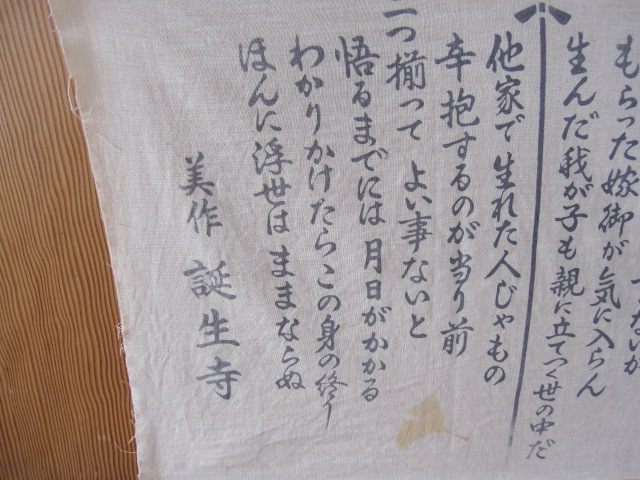 もらった嫁御が気に入らん
生んだ我が子も親に立てつく世の中だ
他家で生れた人じゃもの
辛抱するのが当り前
二つ揃って よい事ないと
悟るまでには 月日がかかる
わかりかけたらこの身の終り
ほんに浮世は ままならぬ
美作 誕生寺